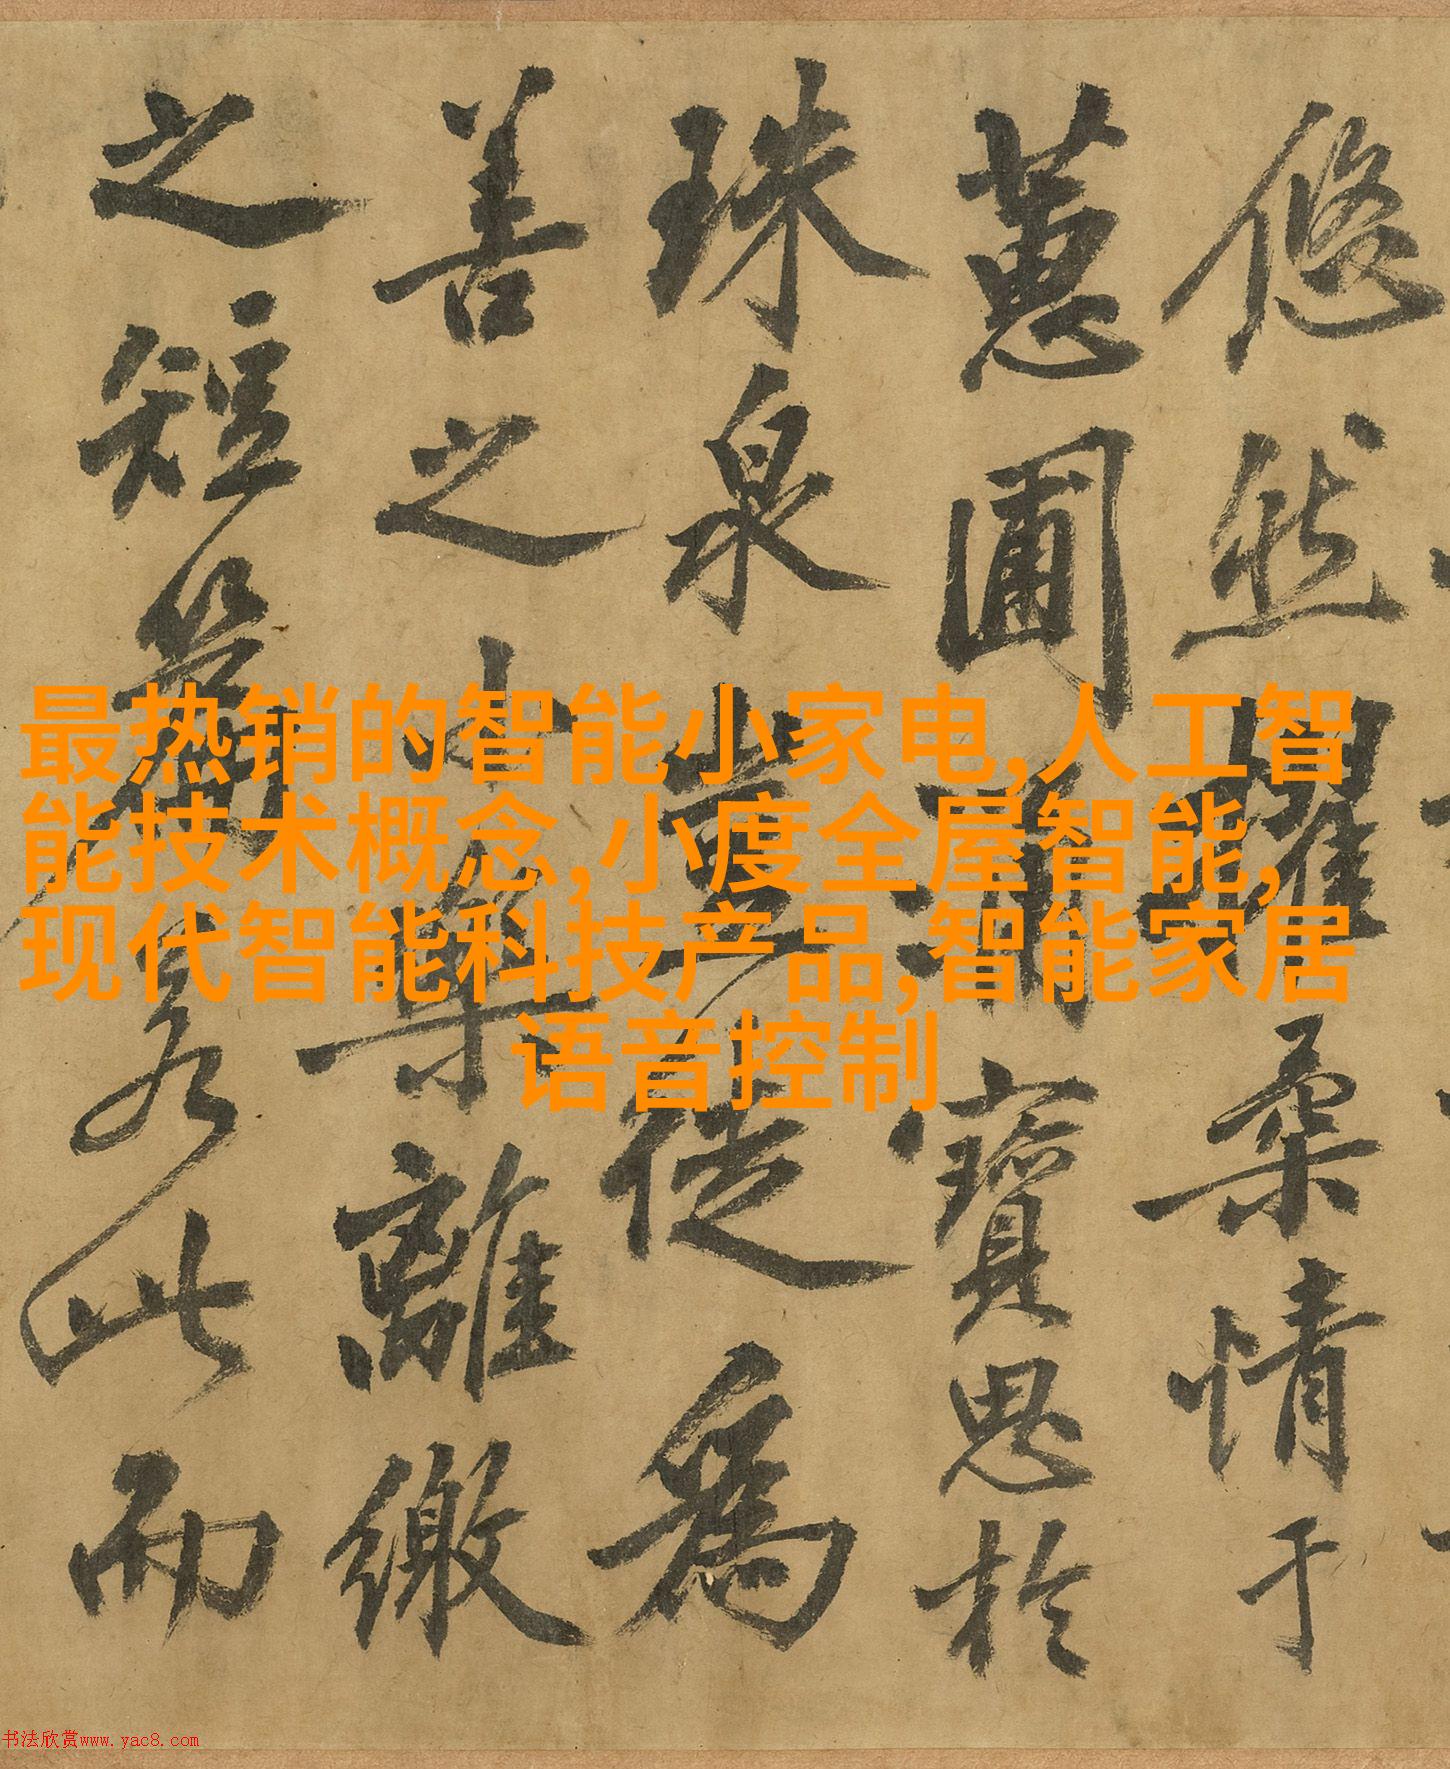 悠然擢柔情于
蕙圃涌寶思於
珠泉豈徒為
善之小樂離繳
之短策若此而
最热销的智能小家电,人工智
能技术概念,小度全屋智能,
现代智能科技产品,智能家居
语音控制
书法欣赏www.yac8.com